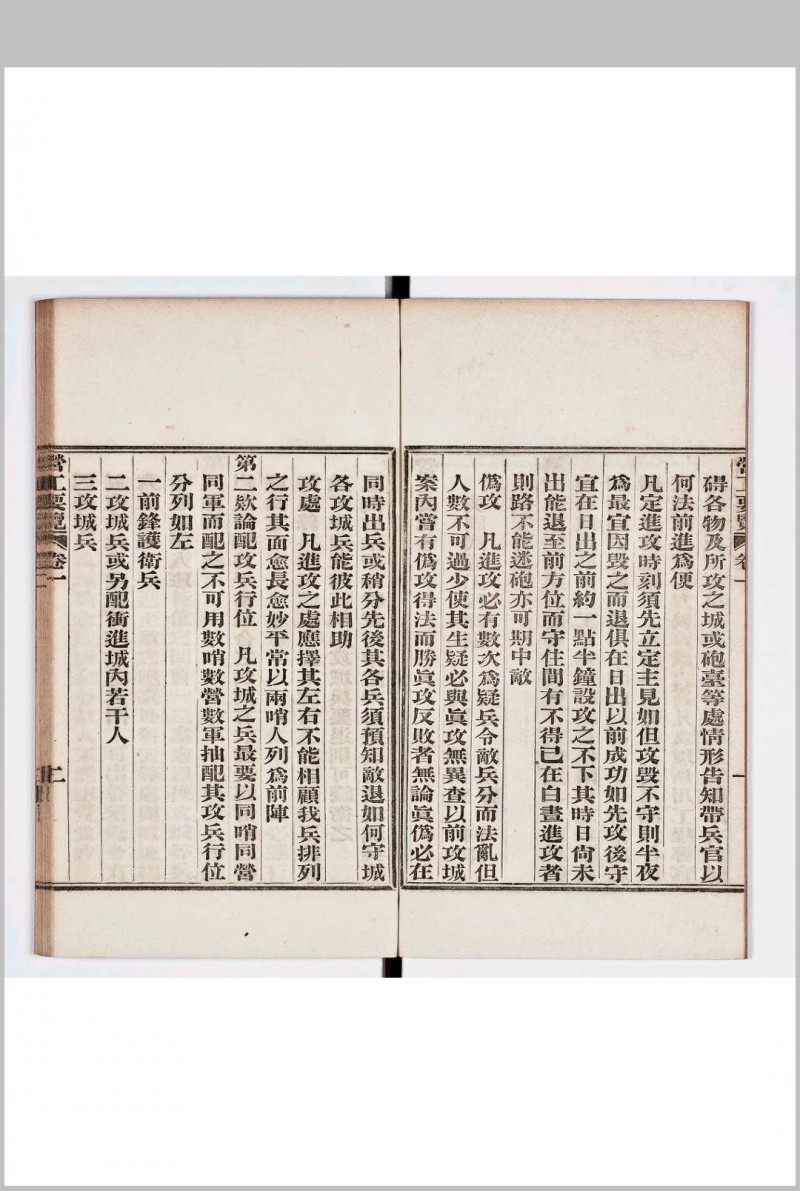 營工要覽 卷一 一
碍各物及所攻之城或砲臺等處情形告知帶兵官以
何法前進爲便
凡定進攻時刻須先立定主見如但攻毀不守則半夜
爲最宜因毀之而退俱在日出以前成功如先攻後守
宜在日出之前約一點半鐘設攻之不下其時日尙未
出能退至前方位而守住間有不得已在白晝進攻者
則路不能逃砲亦可期中敵
僞攻 凡進攻必有數次爲疑兵令敵兵分而法亂但
人數不可過少使其生疑必與眞攻無異查以前攻城
案內嘗有僞攻得法而勝眞攻反敗者無論眞僞必在
同時出兵或稍分先後其各兵須預知敵退如何守城
各攻城兵能彼此相助
攻處 凡進攻之處應擇其左右不能相顧我兵排列
之行其面愈長愈妙平常以兩哨人列爲前陣
第二欵論配攻兵行位 凡攻城之兵最要以同哨同營
同軍而配之不可用數哨數營數軍抽配其攻兵行位
分列如左
一前鋒護衛兵
二攻城兵或另配衝進城內若干人
三攻城兵
營工要覽 卷一